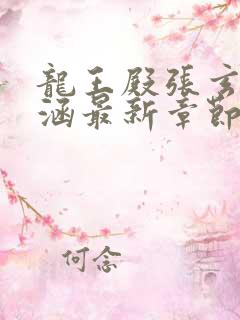 龍王殿張玄
涵最新章節
何念